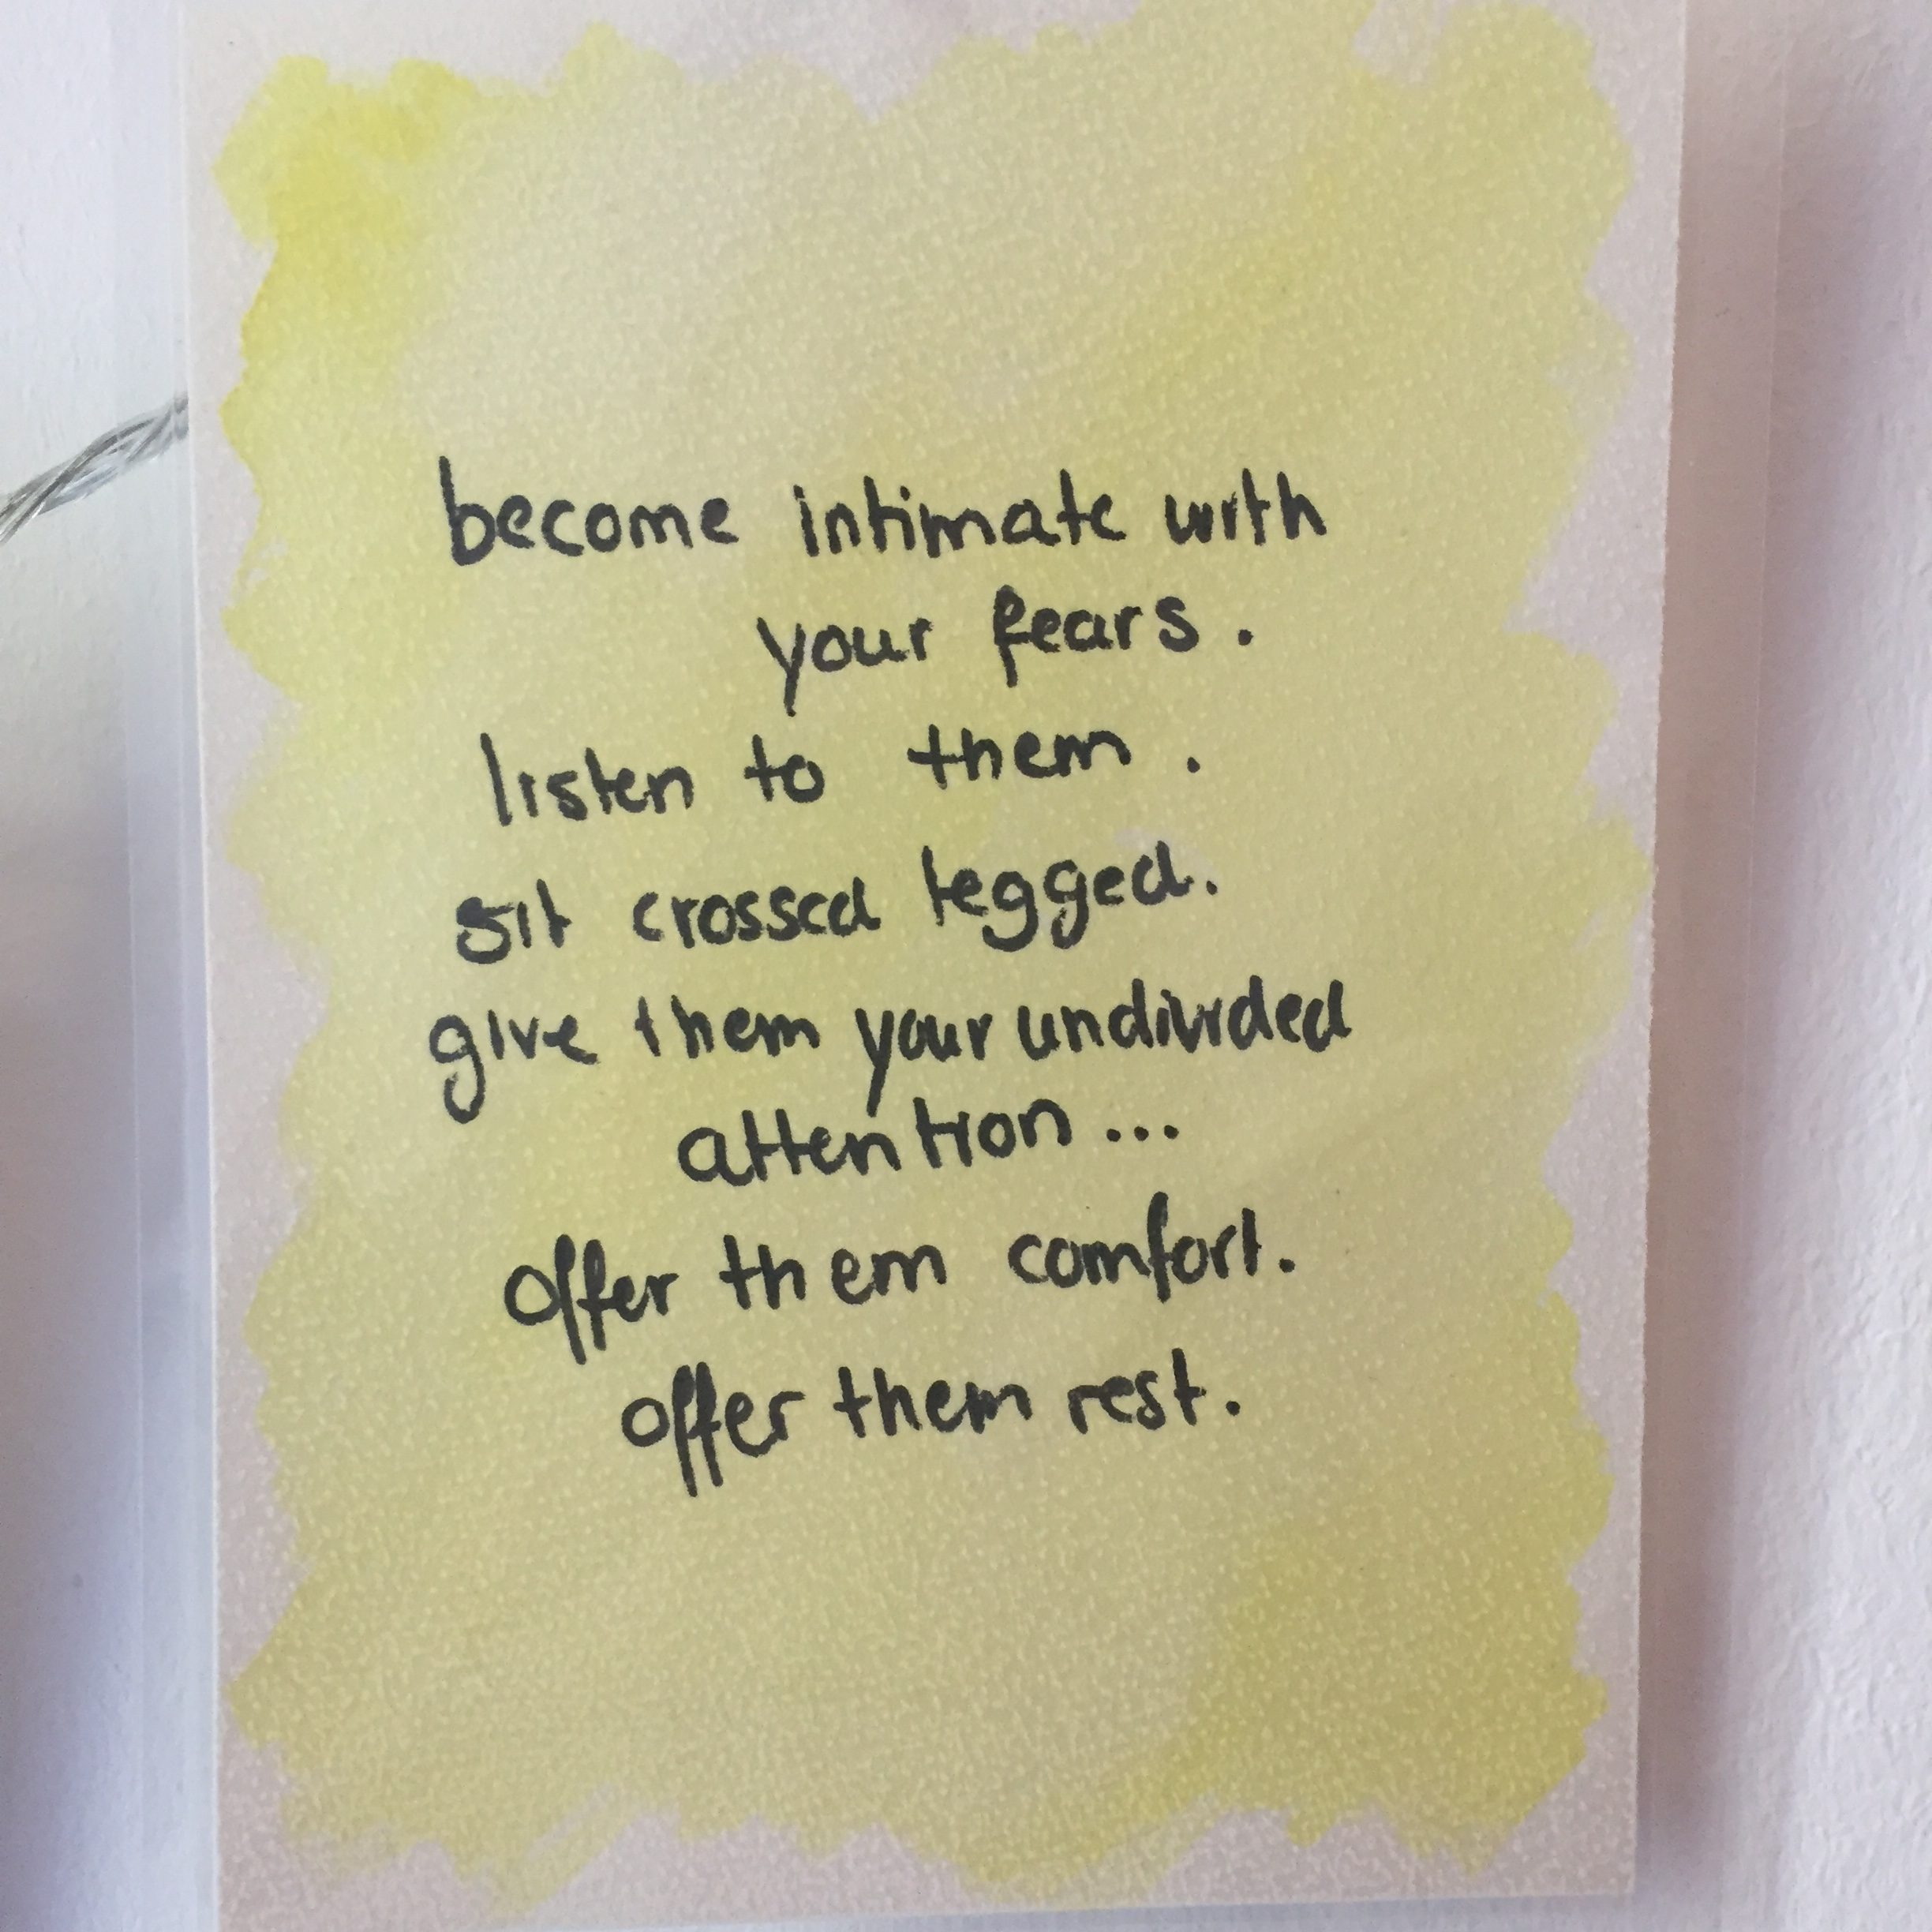 become intimate with
your fears.
listen to them.
sit crossed legged.
give them your undivided
attention...
offer them comfort.
offer them rest.